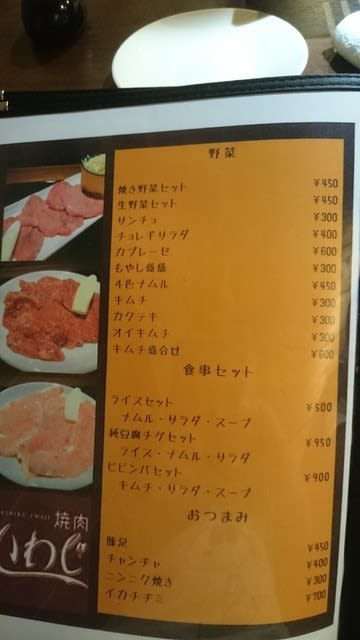 野菜
焼き野菜セット ¥450
生野菜セット ¥450
サンチュ ¥300
チョレギサラダ ¥400
カプレーゼ ¥600
もやし盛盛 ¥300
4色ナムル ¥450
キムチ ¥300
カクテキ ¥300
オイキムチ ¥300
キムチ盛合せ ¥600
食事セット
ライスセット ¥500
ナムル・サラダ・スープ
純豆腐チゲセット ¥950
ライス・ナムル・サラダ
ビビンバセット ¥900
キムチ・サラダ・スープ
おつまみ
豚足 ¥450
チャンヂャ ¥400
ニンニク焼き ¥300
イカチヂミ ¥700
焼肉
いわじ